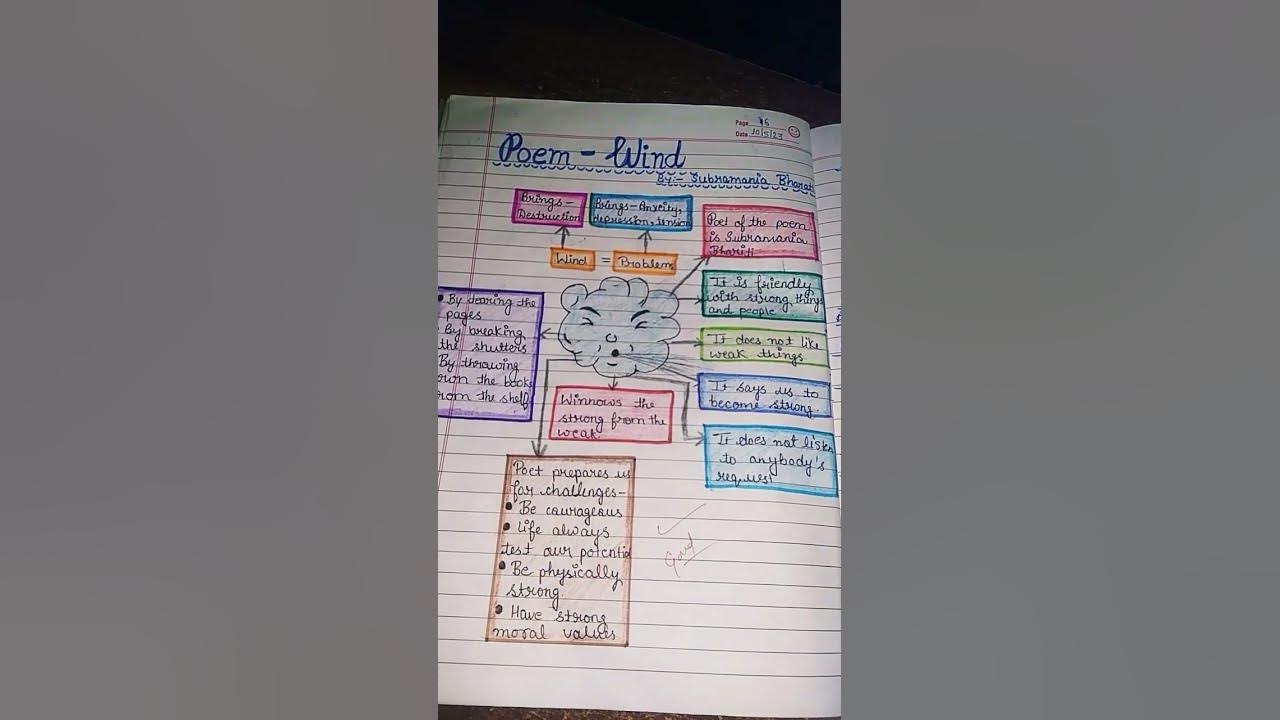 Page 46
Date 10/5/23
Poem - Wind
By:- Subramania Bharat
Brings -
Destruction
Brings - Anxeity,
depression, tension
Wind = Problems
Poet of the poem
is Subramania
Bhariti
It is friendly
with strong things
and people
It does not like
weak things
It says us to
become strong.
It does not listen
to anybody's
request
• By tearing the
pages
• By breaking
the shutters
By throwing
own the books
rom the shelf
Winnows the
strong from the
weak
Poet prepares us
for challenges-
• Be courageous
• Life always
test our potentia
• Be physically
strong.
• Have strong
moral values
Good